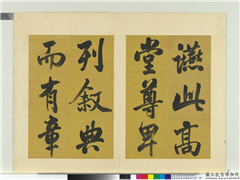 讌此高
堂尊卑
列敘典
而有章
國立故宮博物院